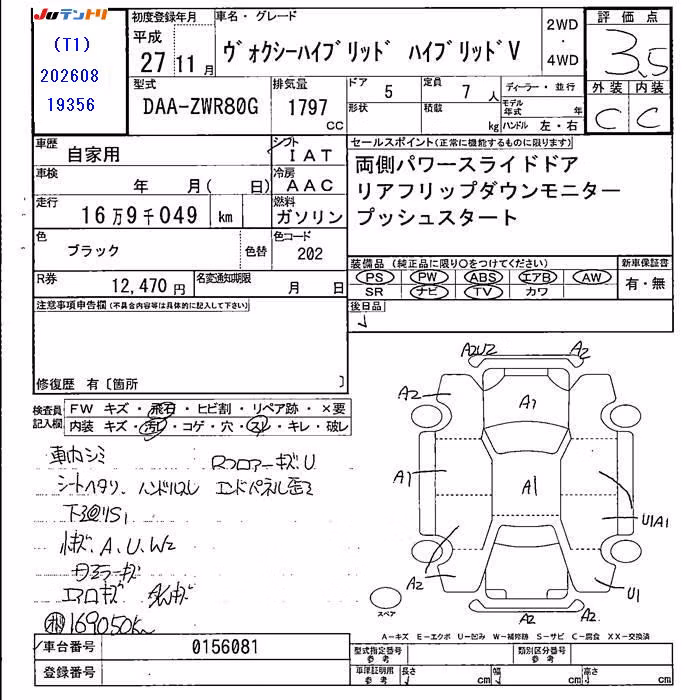 JUテントリ
(T1)
202608
19356
初度登録年月
平成
27 11 月
車名・グレード
ヴォクシーハイブリッド ハイブリッドV
2WD
・
4WD
評価点
3.5
外装 内装
C C
型式
DAA-ZWR80G
排気量
1797
CC
ドア 5
定員 7 人
形状
積載 kg
ディーラー・並行
モデル年式 年
ハンドル 左・右
車歴 自家用
シフト IAT
車検 年 月( 日)
冷房 AAC
走行 16万9千049 km
燃料 ガソリン
色 ブラック 色替
色コード 202
R券 12,470 円
名変通知期限 月 日
セールスポイント(正常に機能するものに限ります)
両側パワースライドドア
リアフリップダウンモニター
プッシュスタート
装備品(純正品に限り○をつけてください)
PS PW ABS エアB AW
SR ナビ TV カワ
新車保証書
有・無
後日品
注意事項申告欄(不具合内容等は具体的に記入して下さい)
修復歴 有〔箇所 〕
検査員記入欄
FW キズ・飛石・ヒビ割・リペア跡・×要
内装 キズ・汚レ・コゲ・穴・スレ・キレ・破レ
車内シミ
Rフロアーキズ U
シートヘタリ、ハンドルスレ エンドパネル歪ミ
下廻りS1
小キズ、A、U、W2
ドアミラーキズ
エアロキズ
169050Km
A2U2 A2
A2 A1
A1 A1
U1A1
A2 U1
A2 A2
スペア
A-キズ E-エクボ U-凹み W-補修跡 S-サビ C-腐食 XX-交換済
車台番号 0156081
登録番号
型式指定番号 参考
類別区分番号 参考
車庫証明用 参考
長さ cm 幅 cm 高さ cm